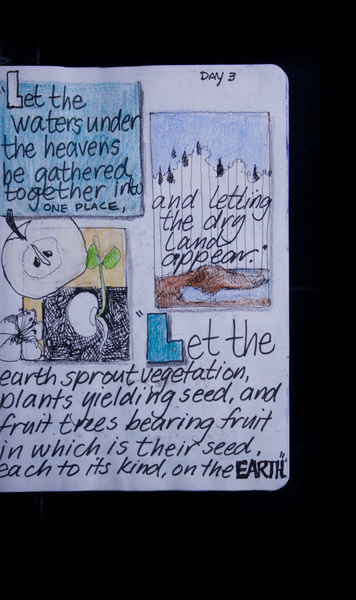 DAY 3
"Let the
waters under
the heavens
be gathered
together into
ONE PLACE,
and letting
the dry
land
appear."
"Let the
earth sprout vegetation,
plants yielding seed, and
fruit trees bearing fruit
in which is their seed,
each to its kind, on the EARTH."